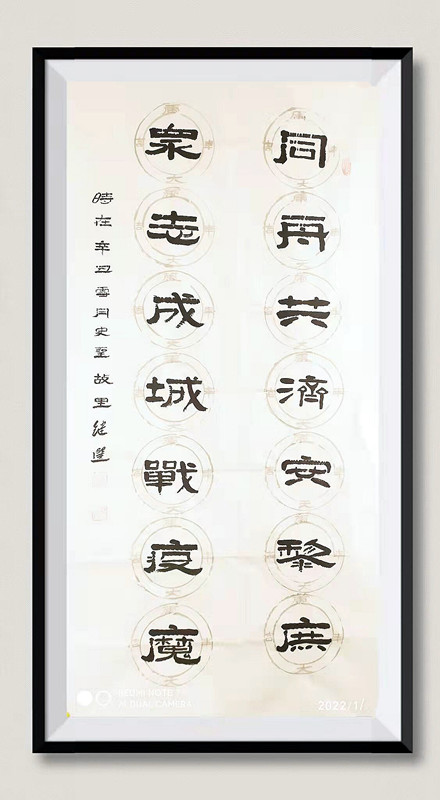 同舟共濟安黎庶
衆志成城戰疫魔
時在辛丑月史故里
REDMI NOTE
AI DUAL CAMERA
2022/1/